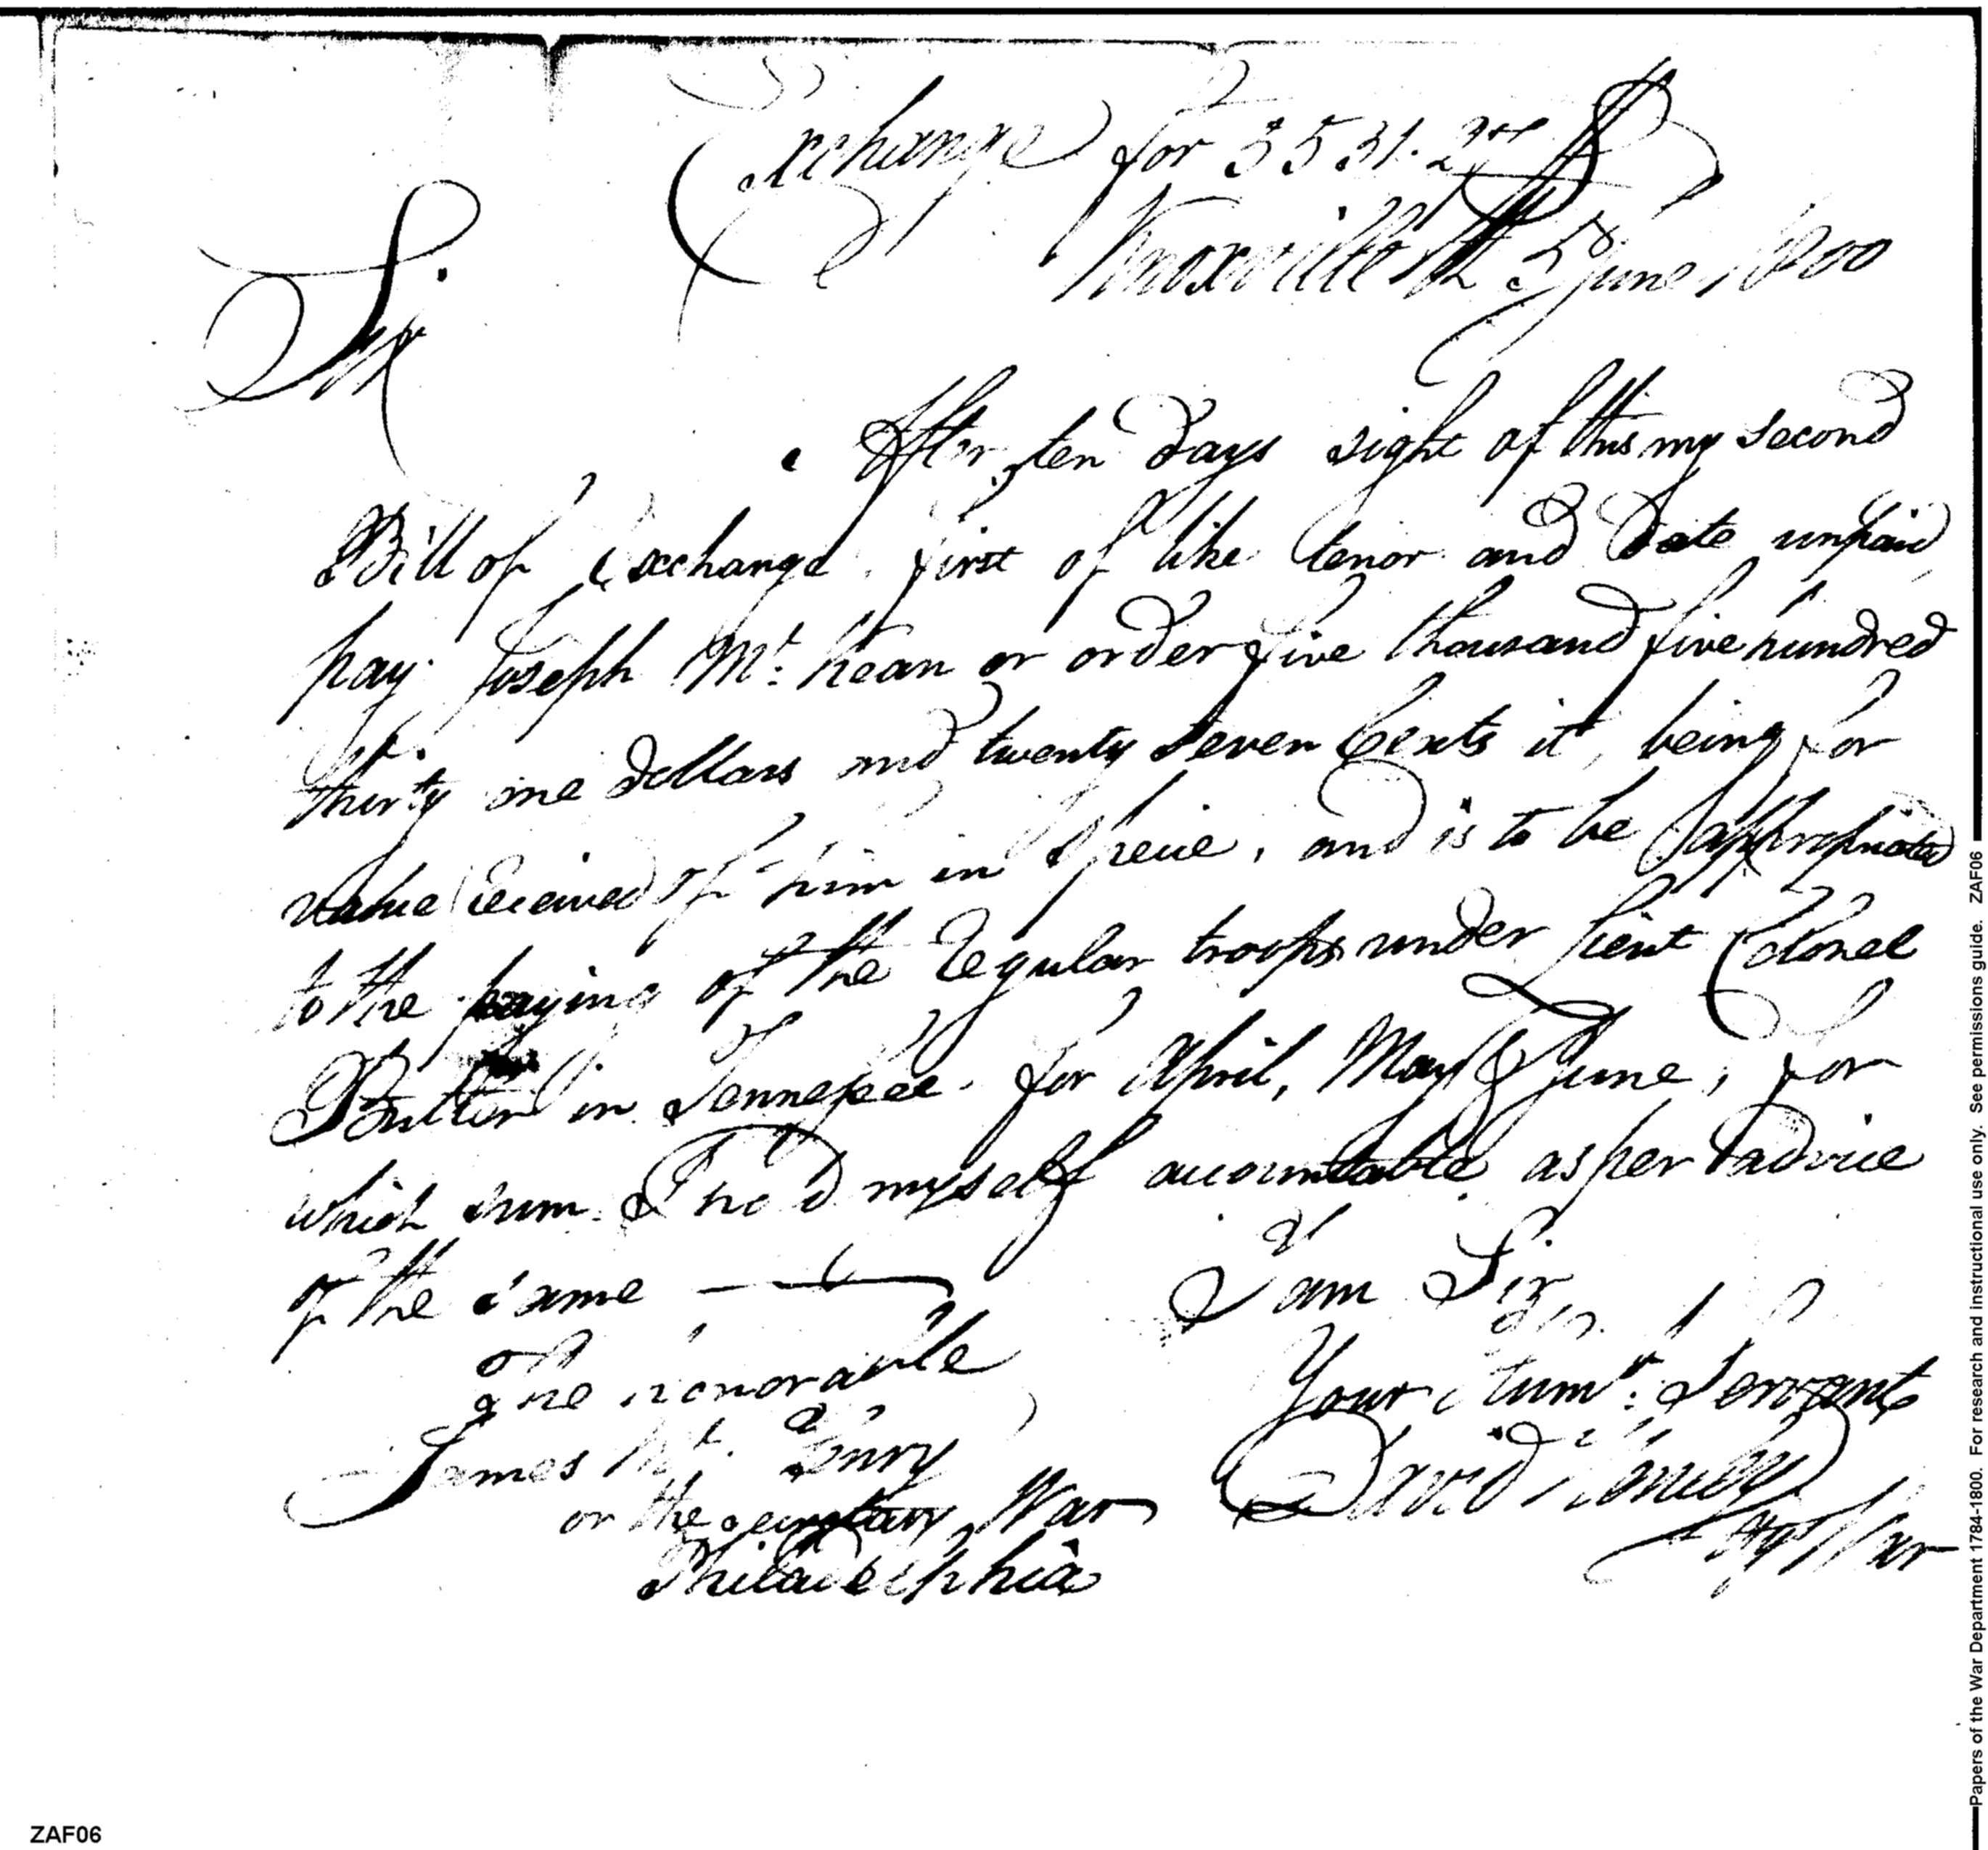 Exchange for 5531.27
Knoxville 5 June 1800
Sir
After ten days sight of this my second
Bill of Exchange first of like tenor and Date unpaid
pay Joseph Mc. Kean or order five thousand five hundred
thirty one dollars and twenty seven Cents it being for
value received of him in Specie, and is to be appropriated
to the paying of the regular troops under Lieut Colonel
Butler in Tennessee for April, May & June, for
which sum I hold myself accountable as per advice
of the same —
I am Sir
The honorable
Your Humb: Servant
James Mc. Henry
David Henley
or the secretary War
Agt War
Philadelphia
Papers of the War Department 1784-1800. For research and instructional use only. See permissions guide. ZAF06
ZAF06